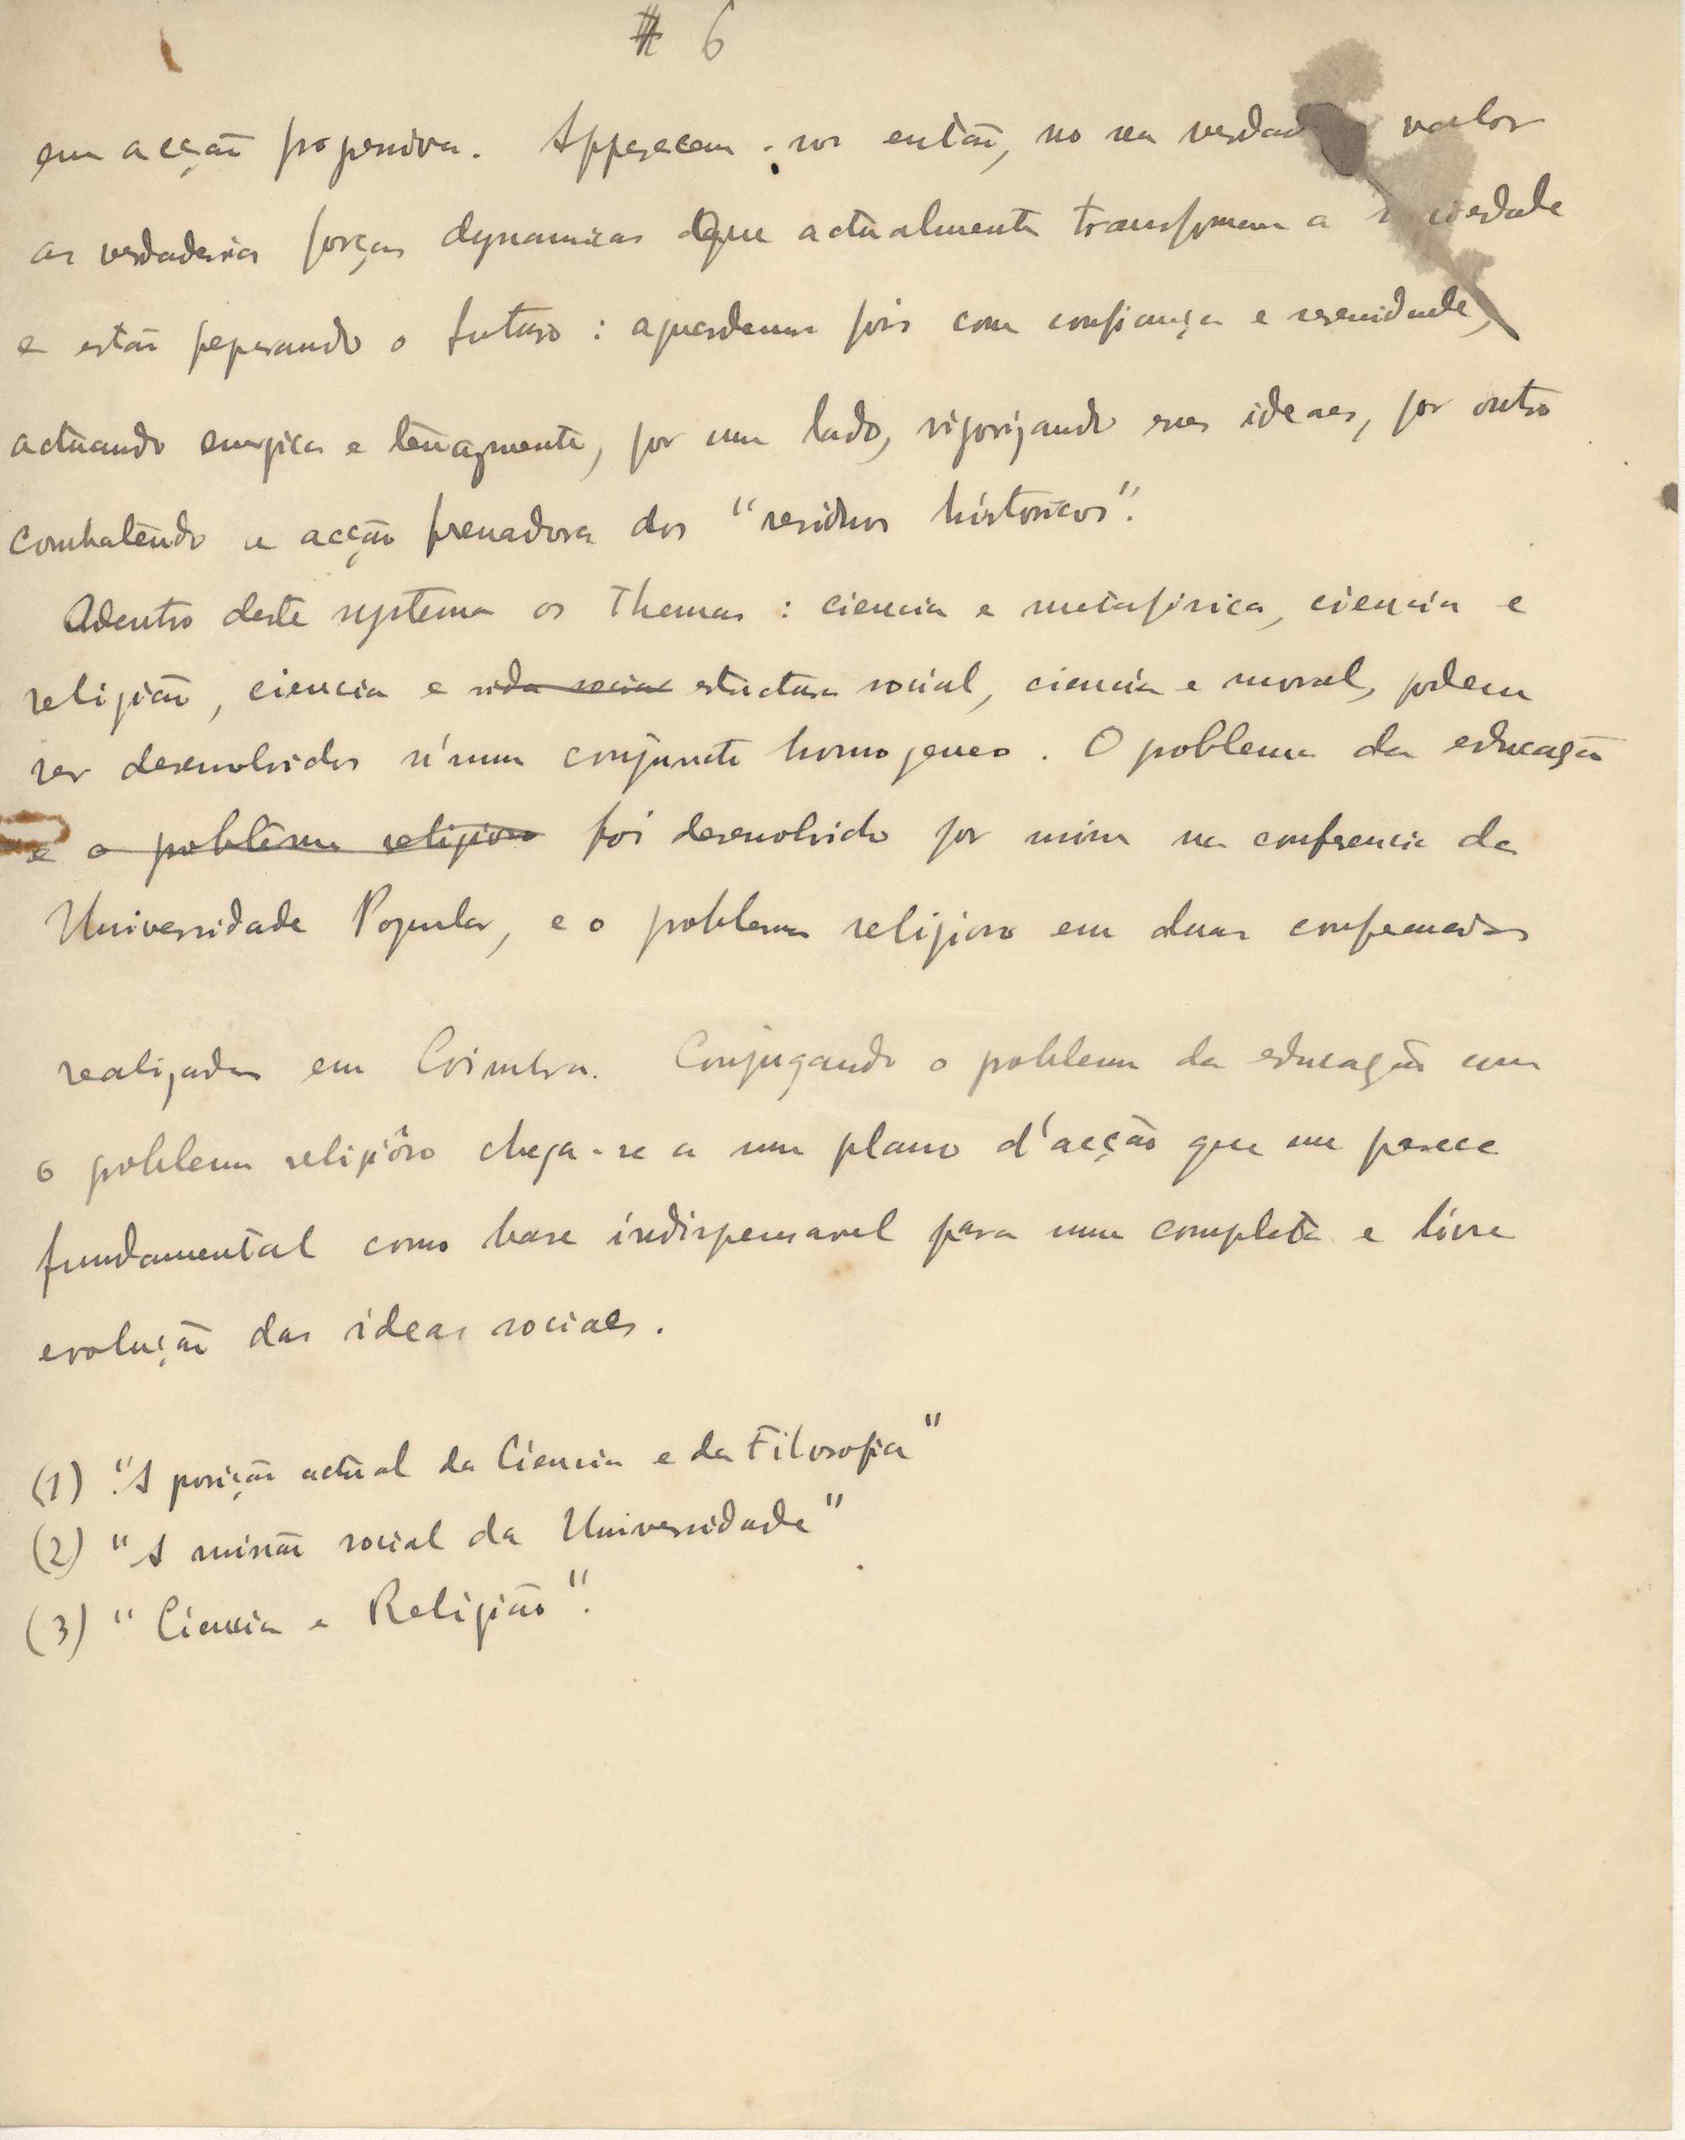 # 6
em acção progressiva. Apparecem-nos então, no seu valor
as verdadeiras forças dynamicas que actualmente transformam a sociedade
e estão preparando o futuro: aguardemos pois com confiança e serenidade,
actuando energica e tenazmente, por um lado, vigorizando esses ideaes, por outro
combatendo a acção frenadora dos "residuos históricos".
Adentro deste systema os themas: ciencia e metafisica, ciencia e
religião, ciencia e vida social estructura social, ciencia e moral, podem
ser desenvolvidos n'um conjuncto homogeneo. O problema da educação
e o problema religioso foi desenvolvido por mim na conferencia da
Universidade Popular, e o problema religioso em duas conferencias
realizadas em Coimbra. Conjugando o problema da educação com
o problema religiôso chega-se a um plano d'acção que me parece
fundamental como base indispensavel para uma completa e livre
evolução das ideas sociaes.
(1) "A posição actual da Ciencia e da Filosofia"
(2) "A missão social da Universidade"
(3) "Ciencia e Religião".